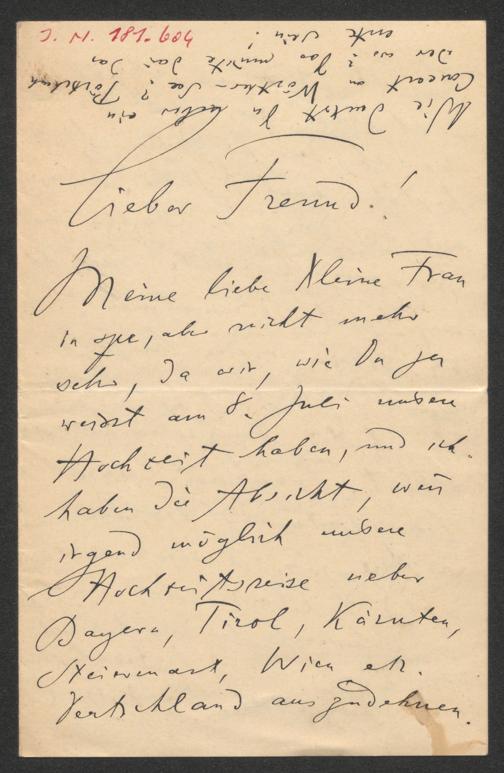 I. N. 181.604
Wie denkst Du über ein
Concert am Wörther-See? Pörtschach
oder wo? Das müßte das
erste sein!
Lieber Freund!
Meine liebe kleine Frau
in spe, aber nicht mehr
sehr, da wir, wie Du ja
weisst am 8. Juli unsere
Hochzeit haben, und ich
haben die Absicht, wenn
irgend möglich unsere
Hochzeitsreise ueber
Bayern, Tirol, Kärnten,
Steiermark, Wien etc.
Deutschland auszudehnen.